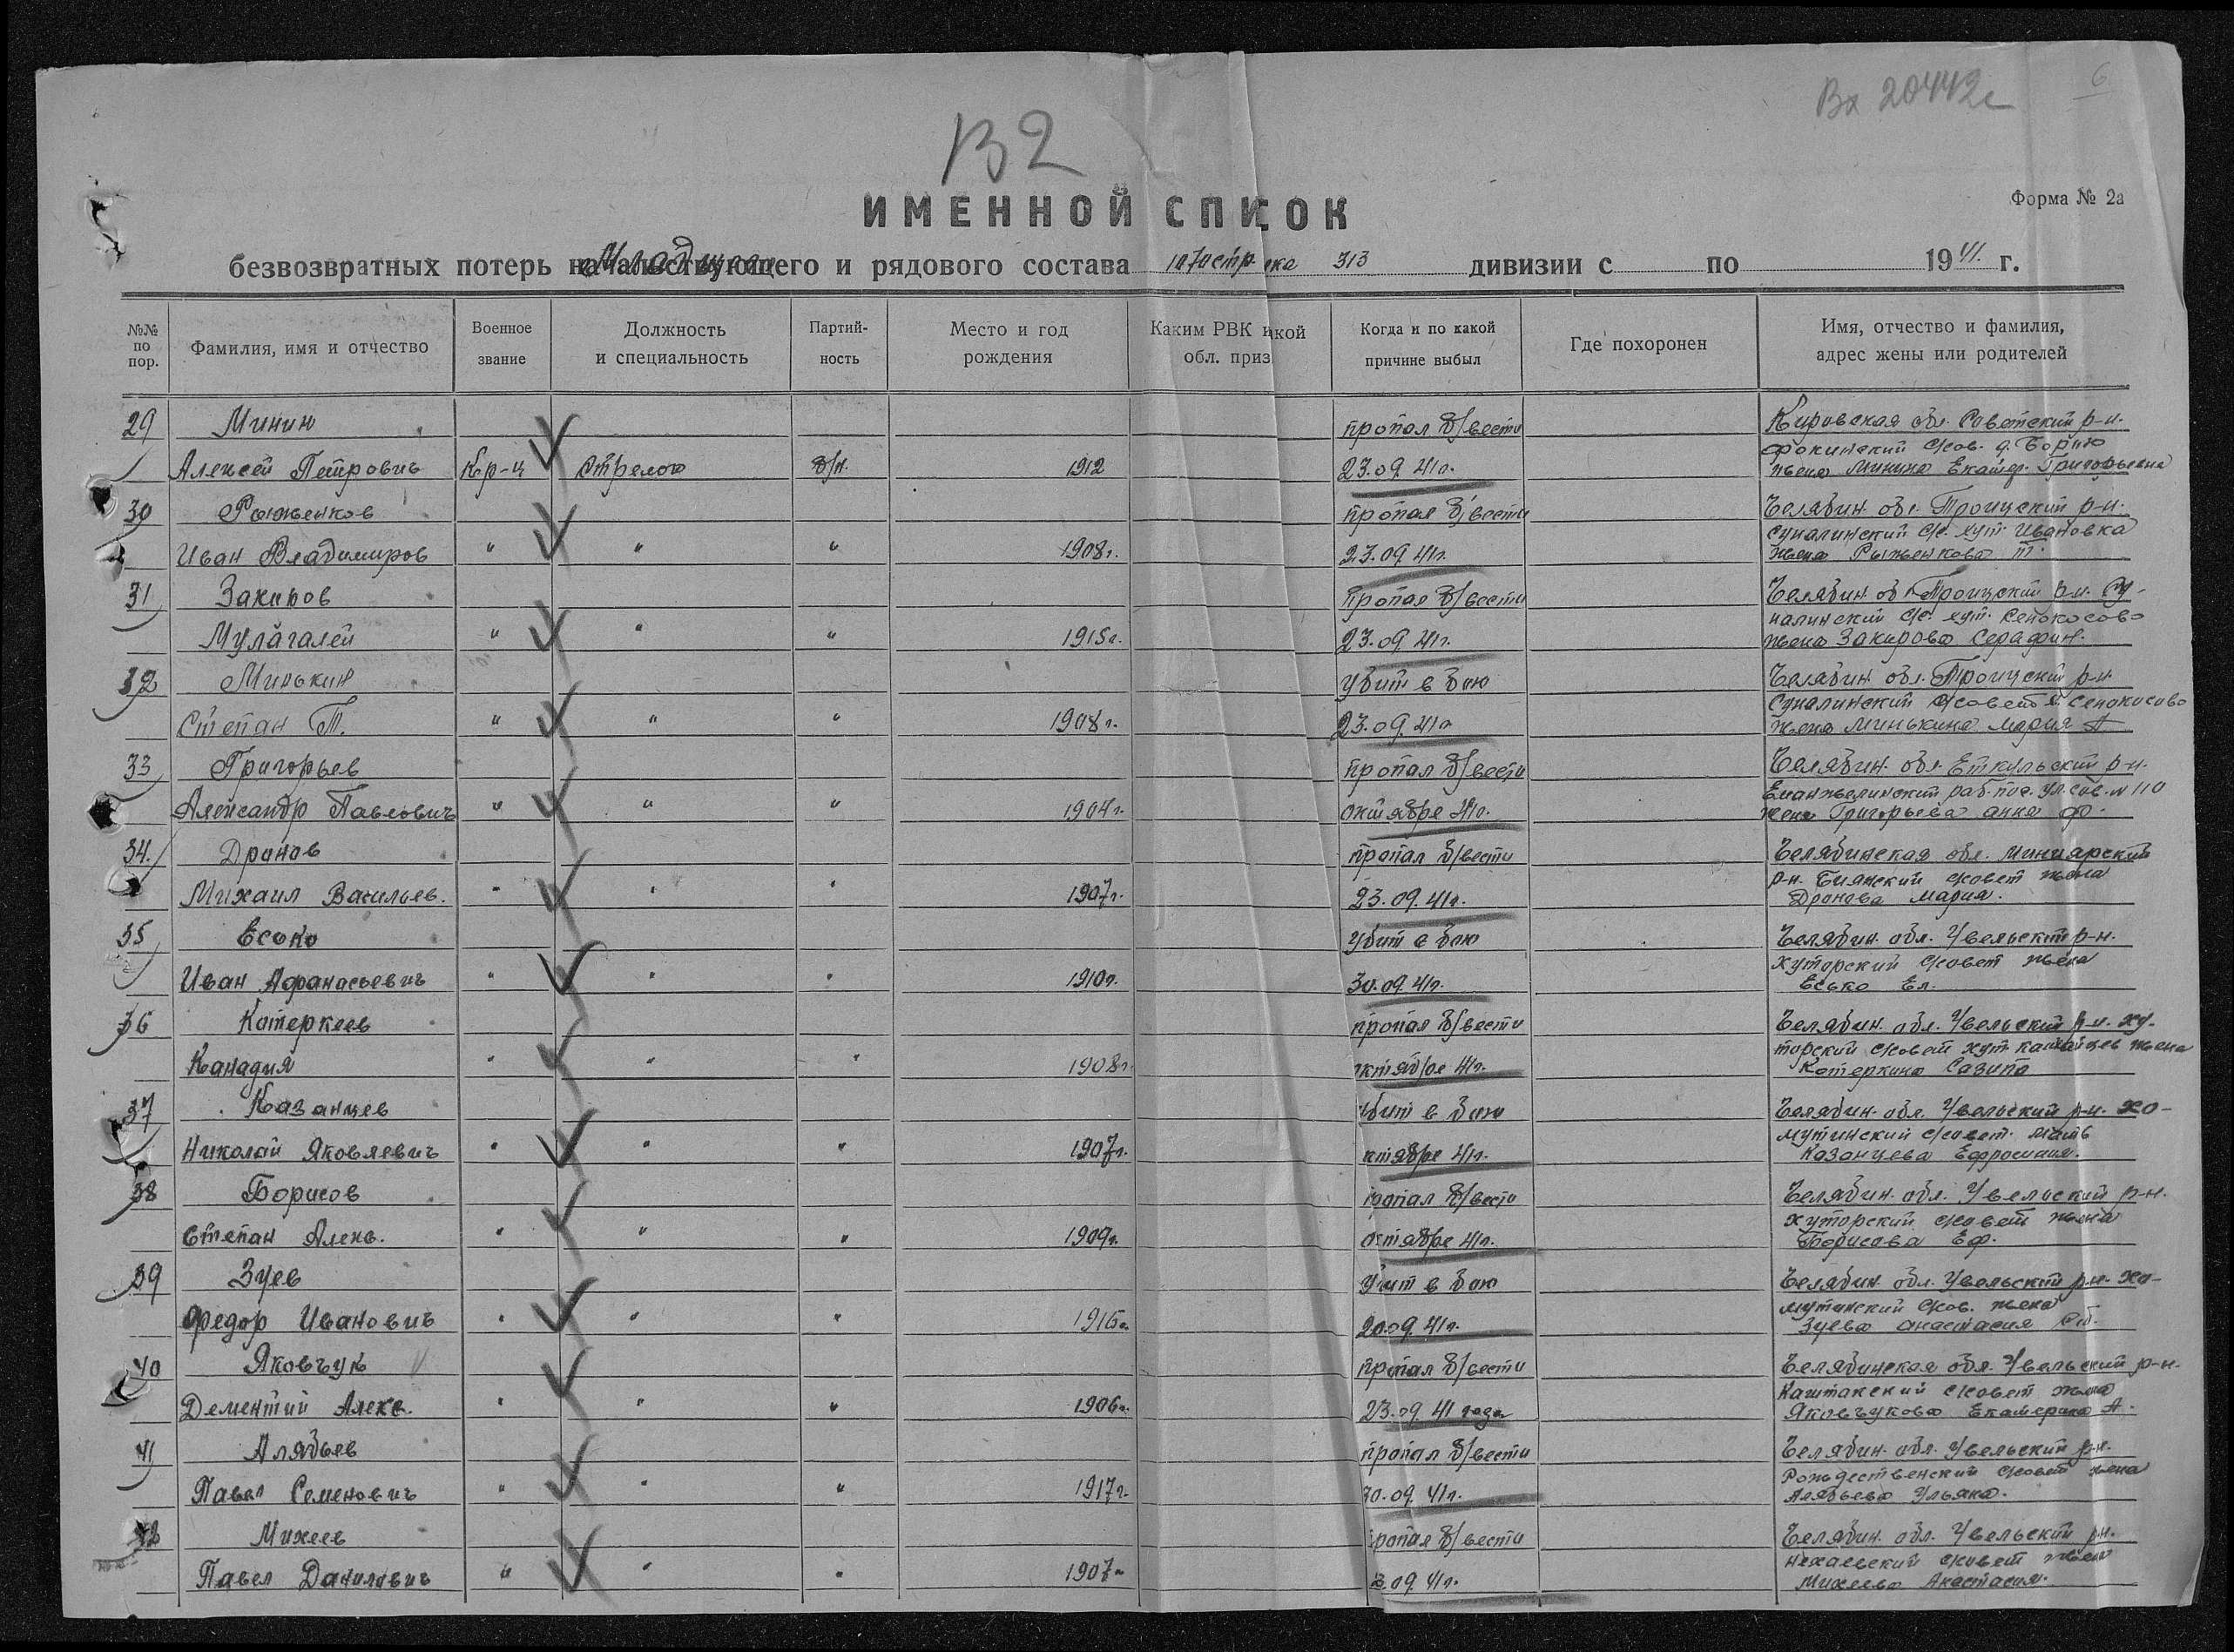 Вх 20442с
6
В2
ИМЕННОЙ СПИСОК
Форма № 2а
безвозвратных потерь младшего и рядового состава 1070 стр. полка 313 дивизии с по 1941 г.
№№ по пор.
Фамилия, имя и отчество
Военное звание
Должность и специальность
Партий-ность
Место и год рождения
Каким РВК какой обл. приз
Когда и по какой причине выбыл
Где похоронен
Имя, отчество и фамилия, адрес жены или родителей
29 Минин пропал б/вести Кировская обл. Советский р-н.
Фокинский с/сов. д.
Алексей Петрович Кр-ц Стрелок б/п. 1912 23.09.41г. жена Минина Екатер. Григорьевна
30 Рыженков пропал б/вести Челябин. обл. Троицский р-н.
с/с. хут. Ивановка
Иван Владимиров " " " 1908г. 23.09.41г. жена Рыженкова Т.
31 Закиров пропал б/вести Челябин. об. Троицский р-н. Су-
налинский с/с. хут. Сенокосово
Мулагалей " " " 1915г. 23.09.41г. жена Закирова Серафин.
32 Минькин убит в бою Челябин. обл. Троицский р-н
Суналинский с/совет х. Сенокосово
Степан Т. " " " 1908г. 23.09.41г. жена Минькина Мария А
33 Григорьев пропал б/вести Челябин. обл. Еткульский р-н.
Еманжелинский раб. пос. ул. Сов. N 110
Александр Павлович " " " 1904г. октябре 41г. жена Григорьева Анна Ф.
34. Дронов пропал б/вести Челябинская обл. Миньярский
р-н. Биянский с/совет жена
Михаил Васильев. " " " 1907г. 23.09.41г. Дронова Мария.
35 Есько убит в бою Челябин. обл. Увельский р-н.
хуторский с/совет жена
Иван Афанасьевич " " " 1910г. 30.09.41г. Есько Ел.
36 Катеркеев пропал б/вести Челябин. обл. Увельский р-н. ху-
торский с/совет хут. жена
Канадия " " " 1908г. октябре 41г. Катеркина
37 Казанцев убит в бою Челябин. обл. Увельский р-н. Хо-
мутинский с/совет. мать
Николай Яковлевич " " " 1907г. октябре 41г. Казанцева Ефросиния.
38 Борисов пропал б/вести Челябин. обл. Увельский р-н.
хуторский с/совет жена
Степан Алекс. " " " 1909г. октябре 41г. Борисова Еф.
39 Зуев Убит в бою Челябин. обл. Увельский р-н. Хо-
мутинский с/сов. жена
Федор Иванович " " " 1916г. 20.09.41г. Зуева Анастасия Ст.
40 Яковчук пропал б/вести Челябинская обл. Увельский р-н.
Каштакский с/совет жена
Дементий Алекс. " " " 1906г. 23.09.41 года Яковчукова Екатерина А.
41 Алябьев пропал б/вести Челябин. обл. Увельский р-н.
Рождественский с/совет жена
Павел Семенович " " " 1917г. 30.09.41г. Алябьева Ульяна.
42 Михеев пропал б/вести Челябин. обл. Увельский р-н.
с/совет жена
Павел Данилович " " " 1907г. 3.09.41г. Михеева Анастасия.